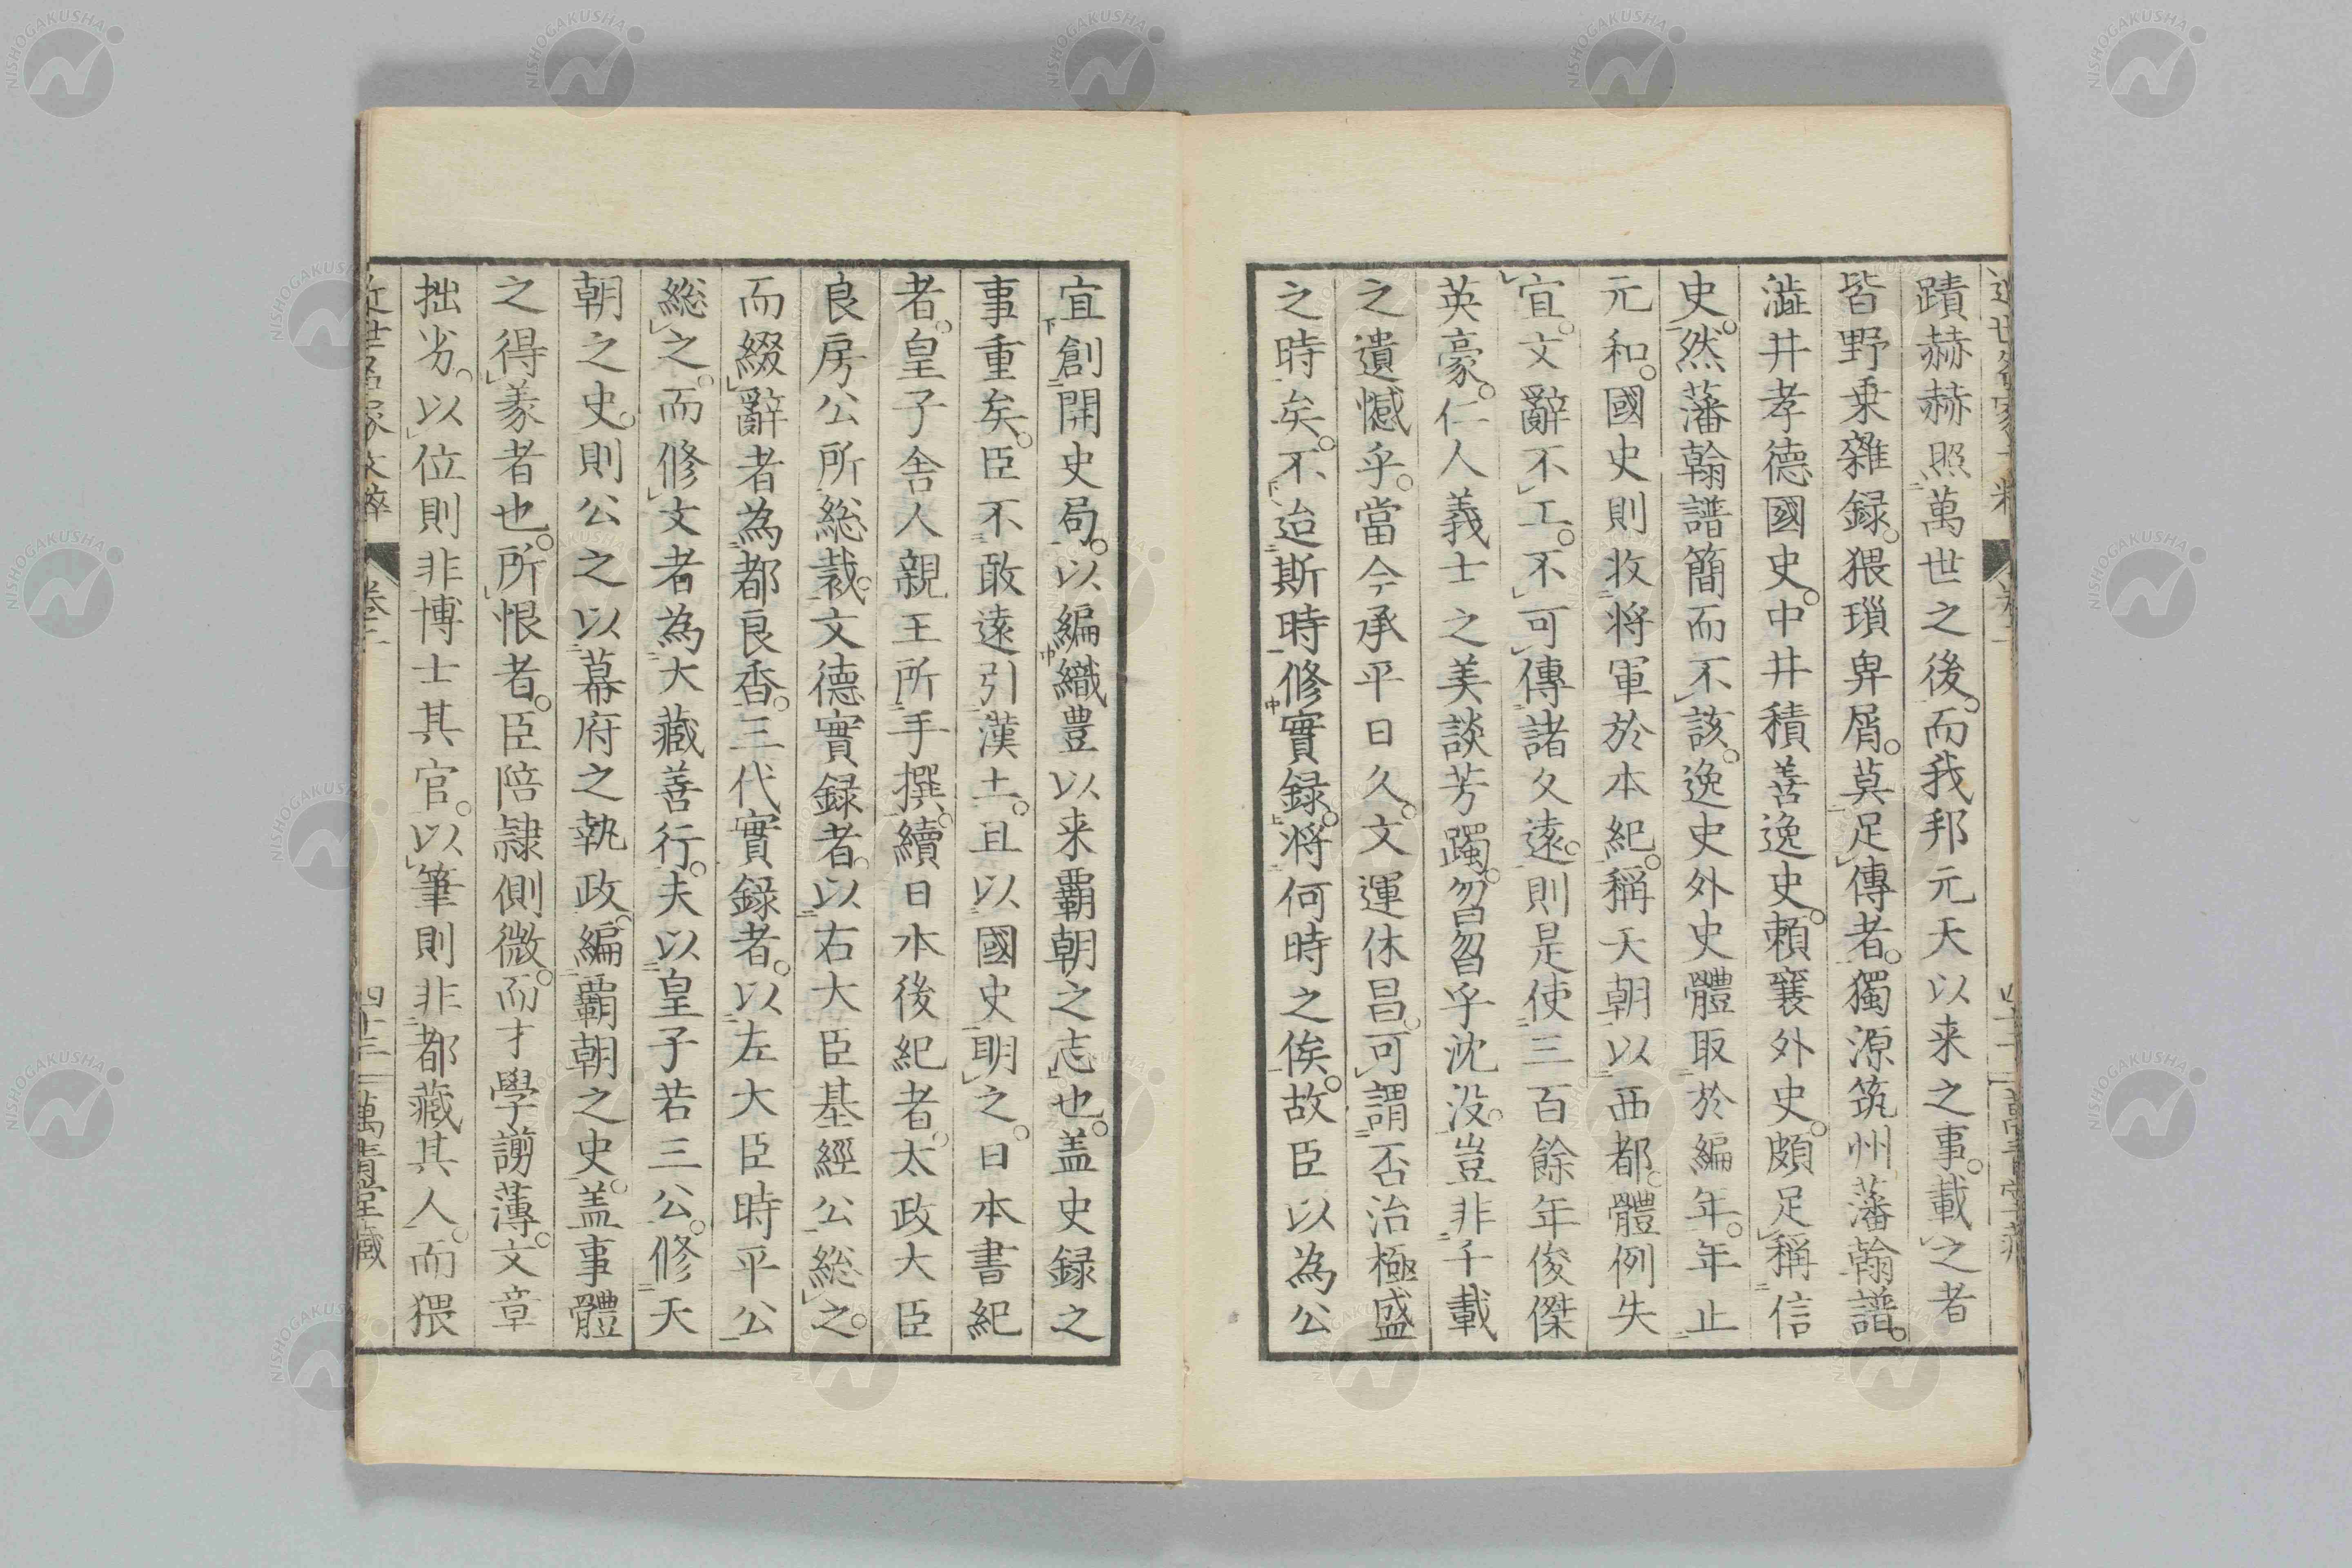 蹟赫赫照萬世之後。而我邦元天以来之事。載之者
皆野乗雜録。猥瑣卑屑。莫足傳者。獨源筑州藩翰譜。
澁井孝德國史。中井積善逸史。頼襄外史。頗足稱信
史。然藩翰譜簡而不該。逸史外史體取於編年。年止
元和。國史則收将軍於本紀。稱天朝以西都。體例失
宜。文辭不工。不可傳諸久遠。則是使三百餘年俊傑
英豪。仁人義士之美談芳躅。曶曶乎沈没。豈非千載
之遺憾乎。當今承平日久。文運休昌。可謂否治極盛
之時矣。不迨斯時修實録。将何時之俟。故臣以為公
宜創開史局。以編織豊以来覇朝之志也。盖史録之
事重矣。臣不敢遠引漢土。且以國史明之。日本書紀
者。皇子舎人親王所手撰、續日本後紀者。太政大臣
良房公所総裁。文德實録者。以右大臣基經公総之。
而綴辭者為都良香。三代實録者。以左大臣時平公
総之。而修文者為大藏善行。夫以皇子若三公。修天
朝之史。則公之以幕府之執政。編覇朝之史。盖事體
之得羕者也。所恨者。臣陪隷側微。而才學譾薄。文章
拙劣。以位則非博士其官。以筆則非都藏其人。而猥
近世名家文粹 卷二 四十三 萬青堂藏
NISHOGAKUSHA